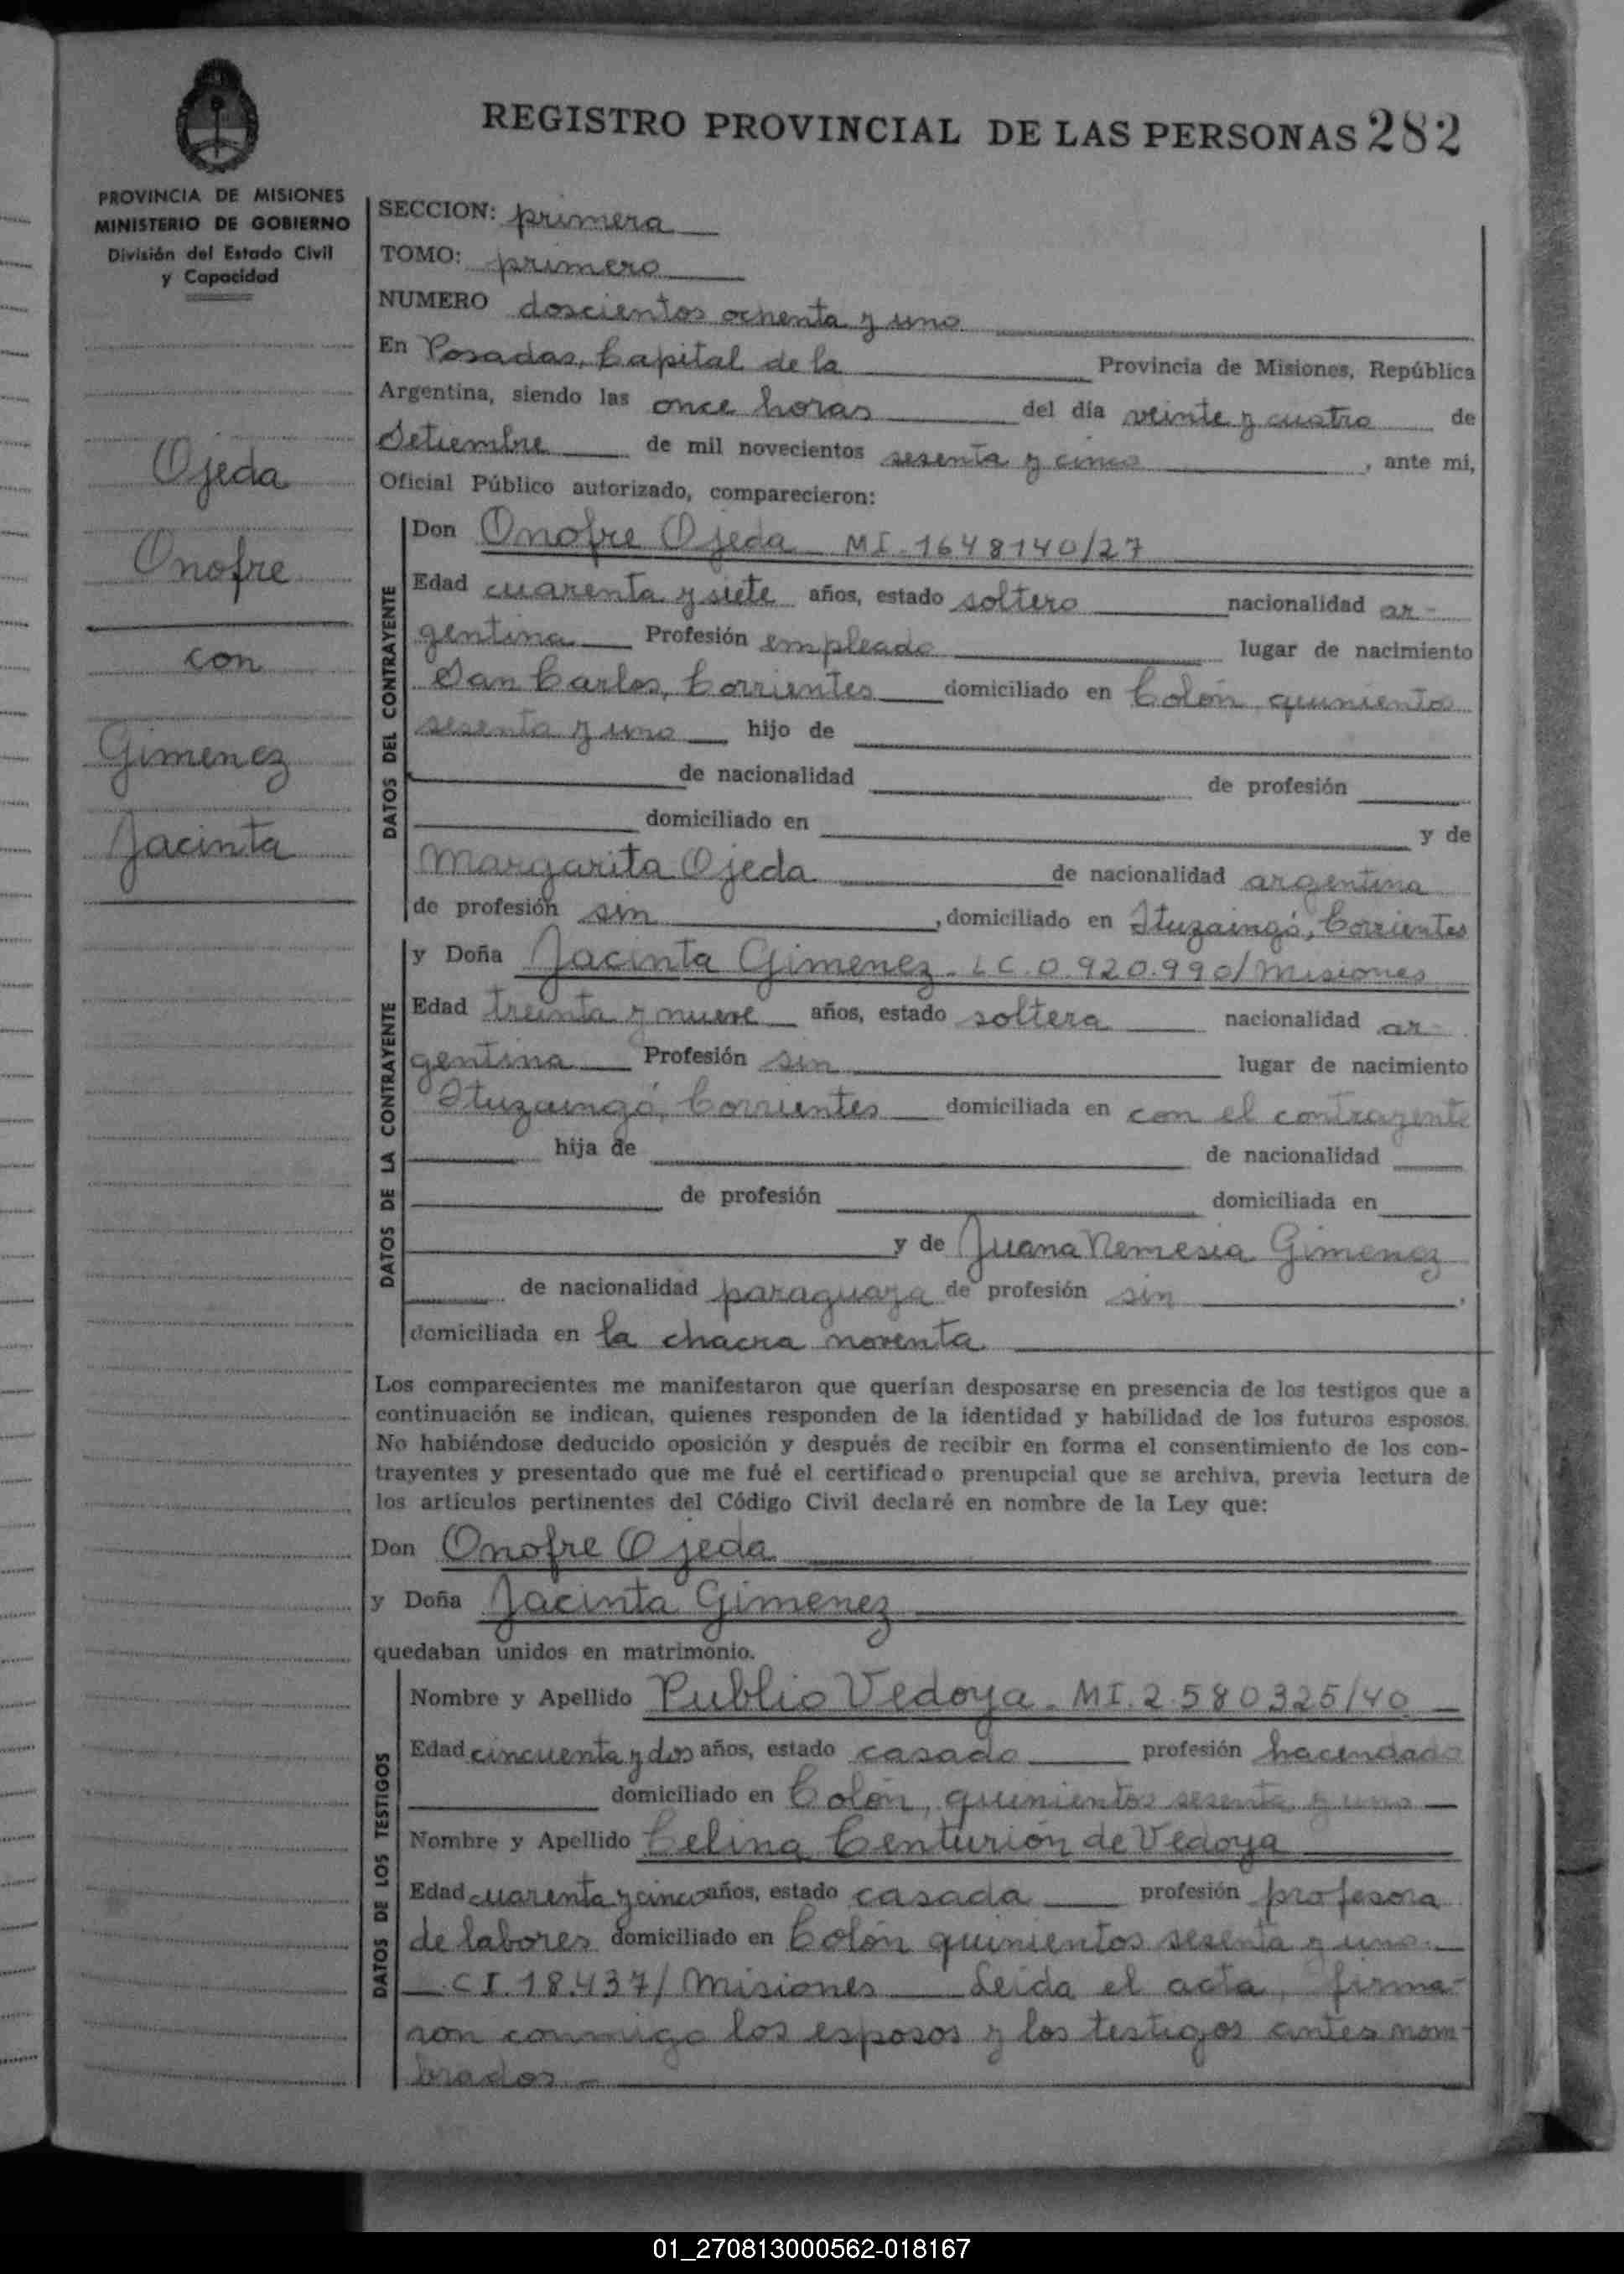 REGISTRO PROVINCIAL DE LAS PERSONAS 282
PROVINCIA DE MISIONES
MINISTERIO DE GOBIERNO
División del Estado Civil
y Capacidad
Ojeda
Onofre
con
Gimenez
Jacinta
SECCION: primera
TOMO: primero
NUMERO doscientos ochenta y uno
En Posadas, Capital de la Provincia de Misiones, República
Argentina, siendo las once horas del día veinte y cuatro de
Setiembre de mil novecientos sesenta y cinco, ante mi,
Oficial Público autorizado, comparecieron:
DATOS DEL CONTRAYENTE
Don Onofre Ojeda MI. 1648140/27
Edad cuarenta y siete años, estado soltero nacionalidad ar-
gentina Profesión empleado lugar de nacimiento
San Carlos, Corrientes domiciliado en Colón quinientos
sesenta y uno hijo de
de nacionalidad de profesión
domiciliado en y de
Margarita Ojeda de nacionalidad argentina
de profesión sin, domiciliado en Ituzaingó, Corrientes
DATOS DE LA CONTRAYENTE
y Doña Jacinta Gimenez. LC. 0.920.990/Misiones
Edad treinta y nueve años, estado soltera nacionalidad ar-
gentina Profesión sin lugar de nacimiento
Ituzaingó, Corrientes domiciliada en con el contrayente
hija de de nacionalidad
de profesión domiciliada en
y de Juana Nemesia Gimenez
de nacionalidad paraguaya de profesión sin,
domiciliada en la chacra noventa
Los comparecientes me manifestaron que querían desposarse en presencia de los testigos que a
continuación se indican, quienes responden de la identidad y habilidad de los futuros esposos.
No habiéndose deducido oposición y después de recibir en forma el consentimiento de los con-
trayentes y presentado que me fué el certificado prenupcial que se archiva, previa lectura de
los artículos pertinentes del Código Civil declaré en nombre de la Ley que:
Don Onofre Ojeda
y Doña Jacinta Gimenez
quedaban unidos en matrimonio.
DATOS DE LOS TESTIGOS
Nombre y Apellido Publio Vedoya. MI. 2.580325/40
Edad cincuenta y dos años, estado casado profesión hacendado
domiciliado en Colón, quinientos sesenta y uno
Nombre y Apellido Celina Centurión de Vedoya
Edad cuarenta y cinco años, estado casada profesión profesora
de labores domiciliado en Colón quinientos sesenta y uno.
C.I. 18.437/Misiones Leida el acta, firma-
ron conmigo los esposos y los testigos antes nom-
brados.-
01_270813000562-018167